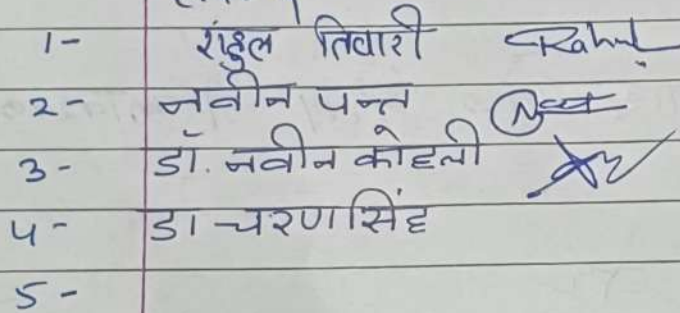 1- राहुल तिवारी Rahul
2- नवीन पन्त
3- डॉ. नवीन कोहली
4- डा चरणसिंह
5-